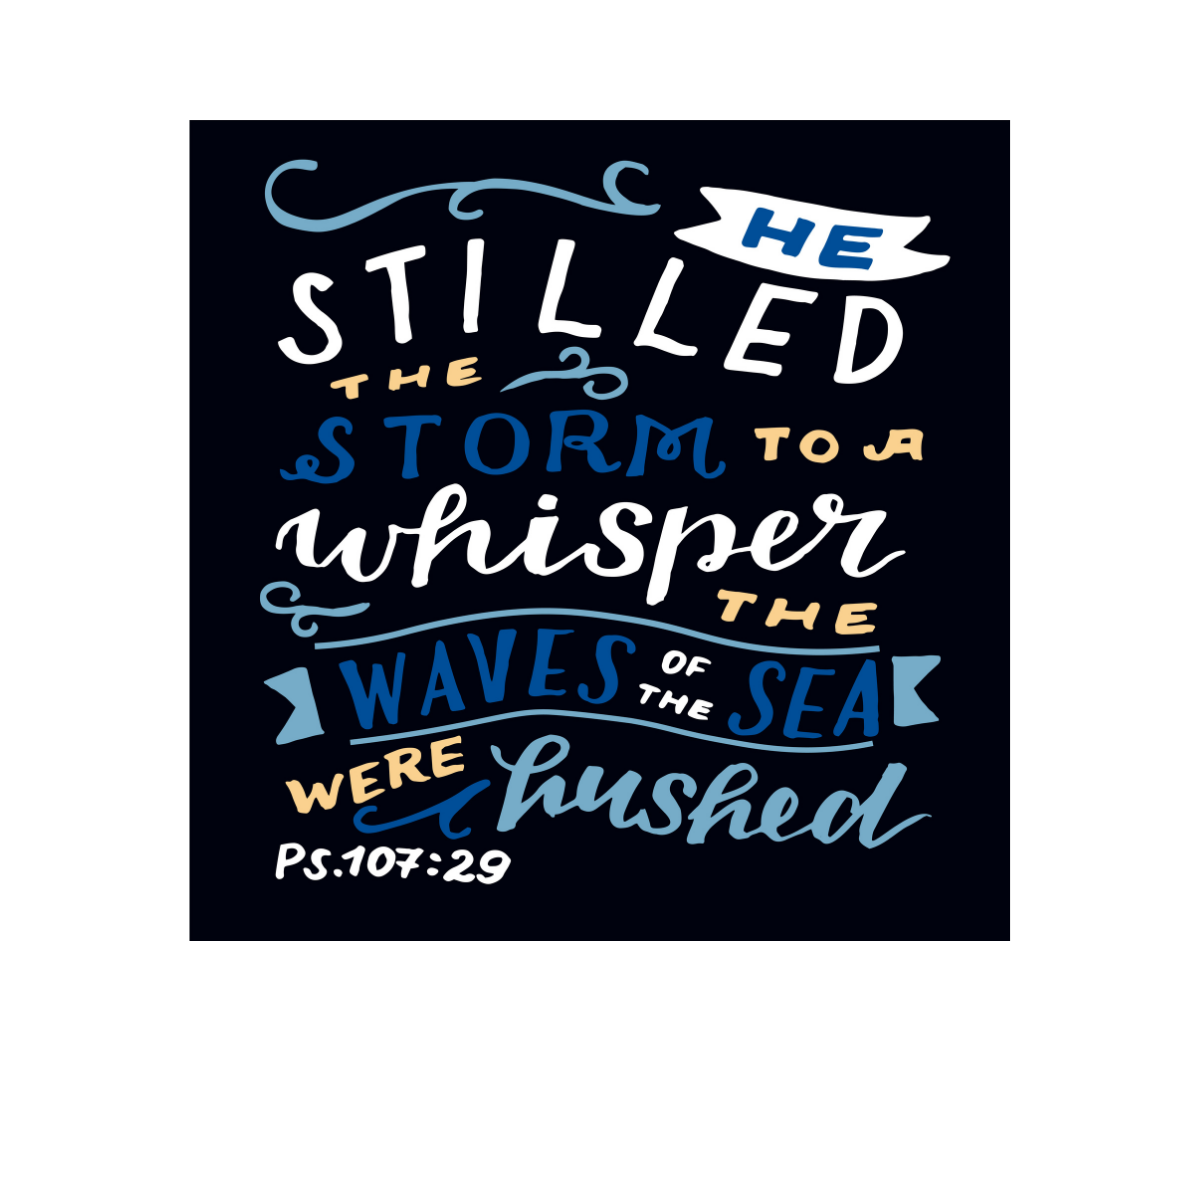 HE
STILLED
THE
STORM TO A
whisper
THE
WAVES OF THE SEA
WERE hushed
PS.107:29